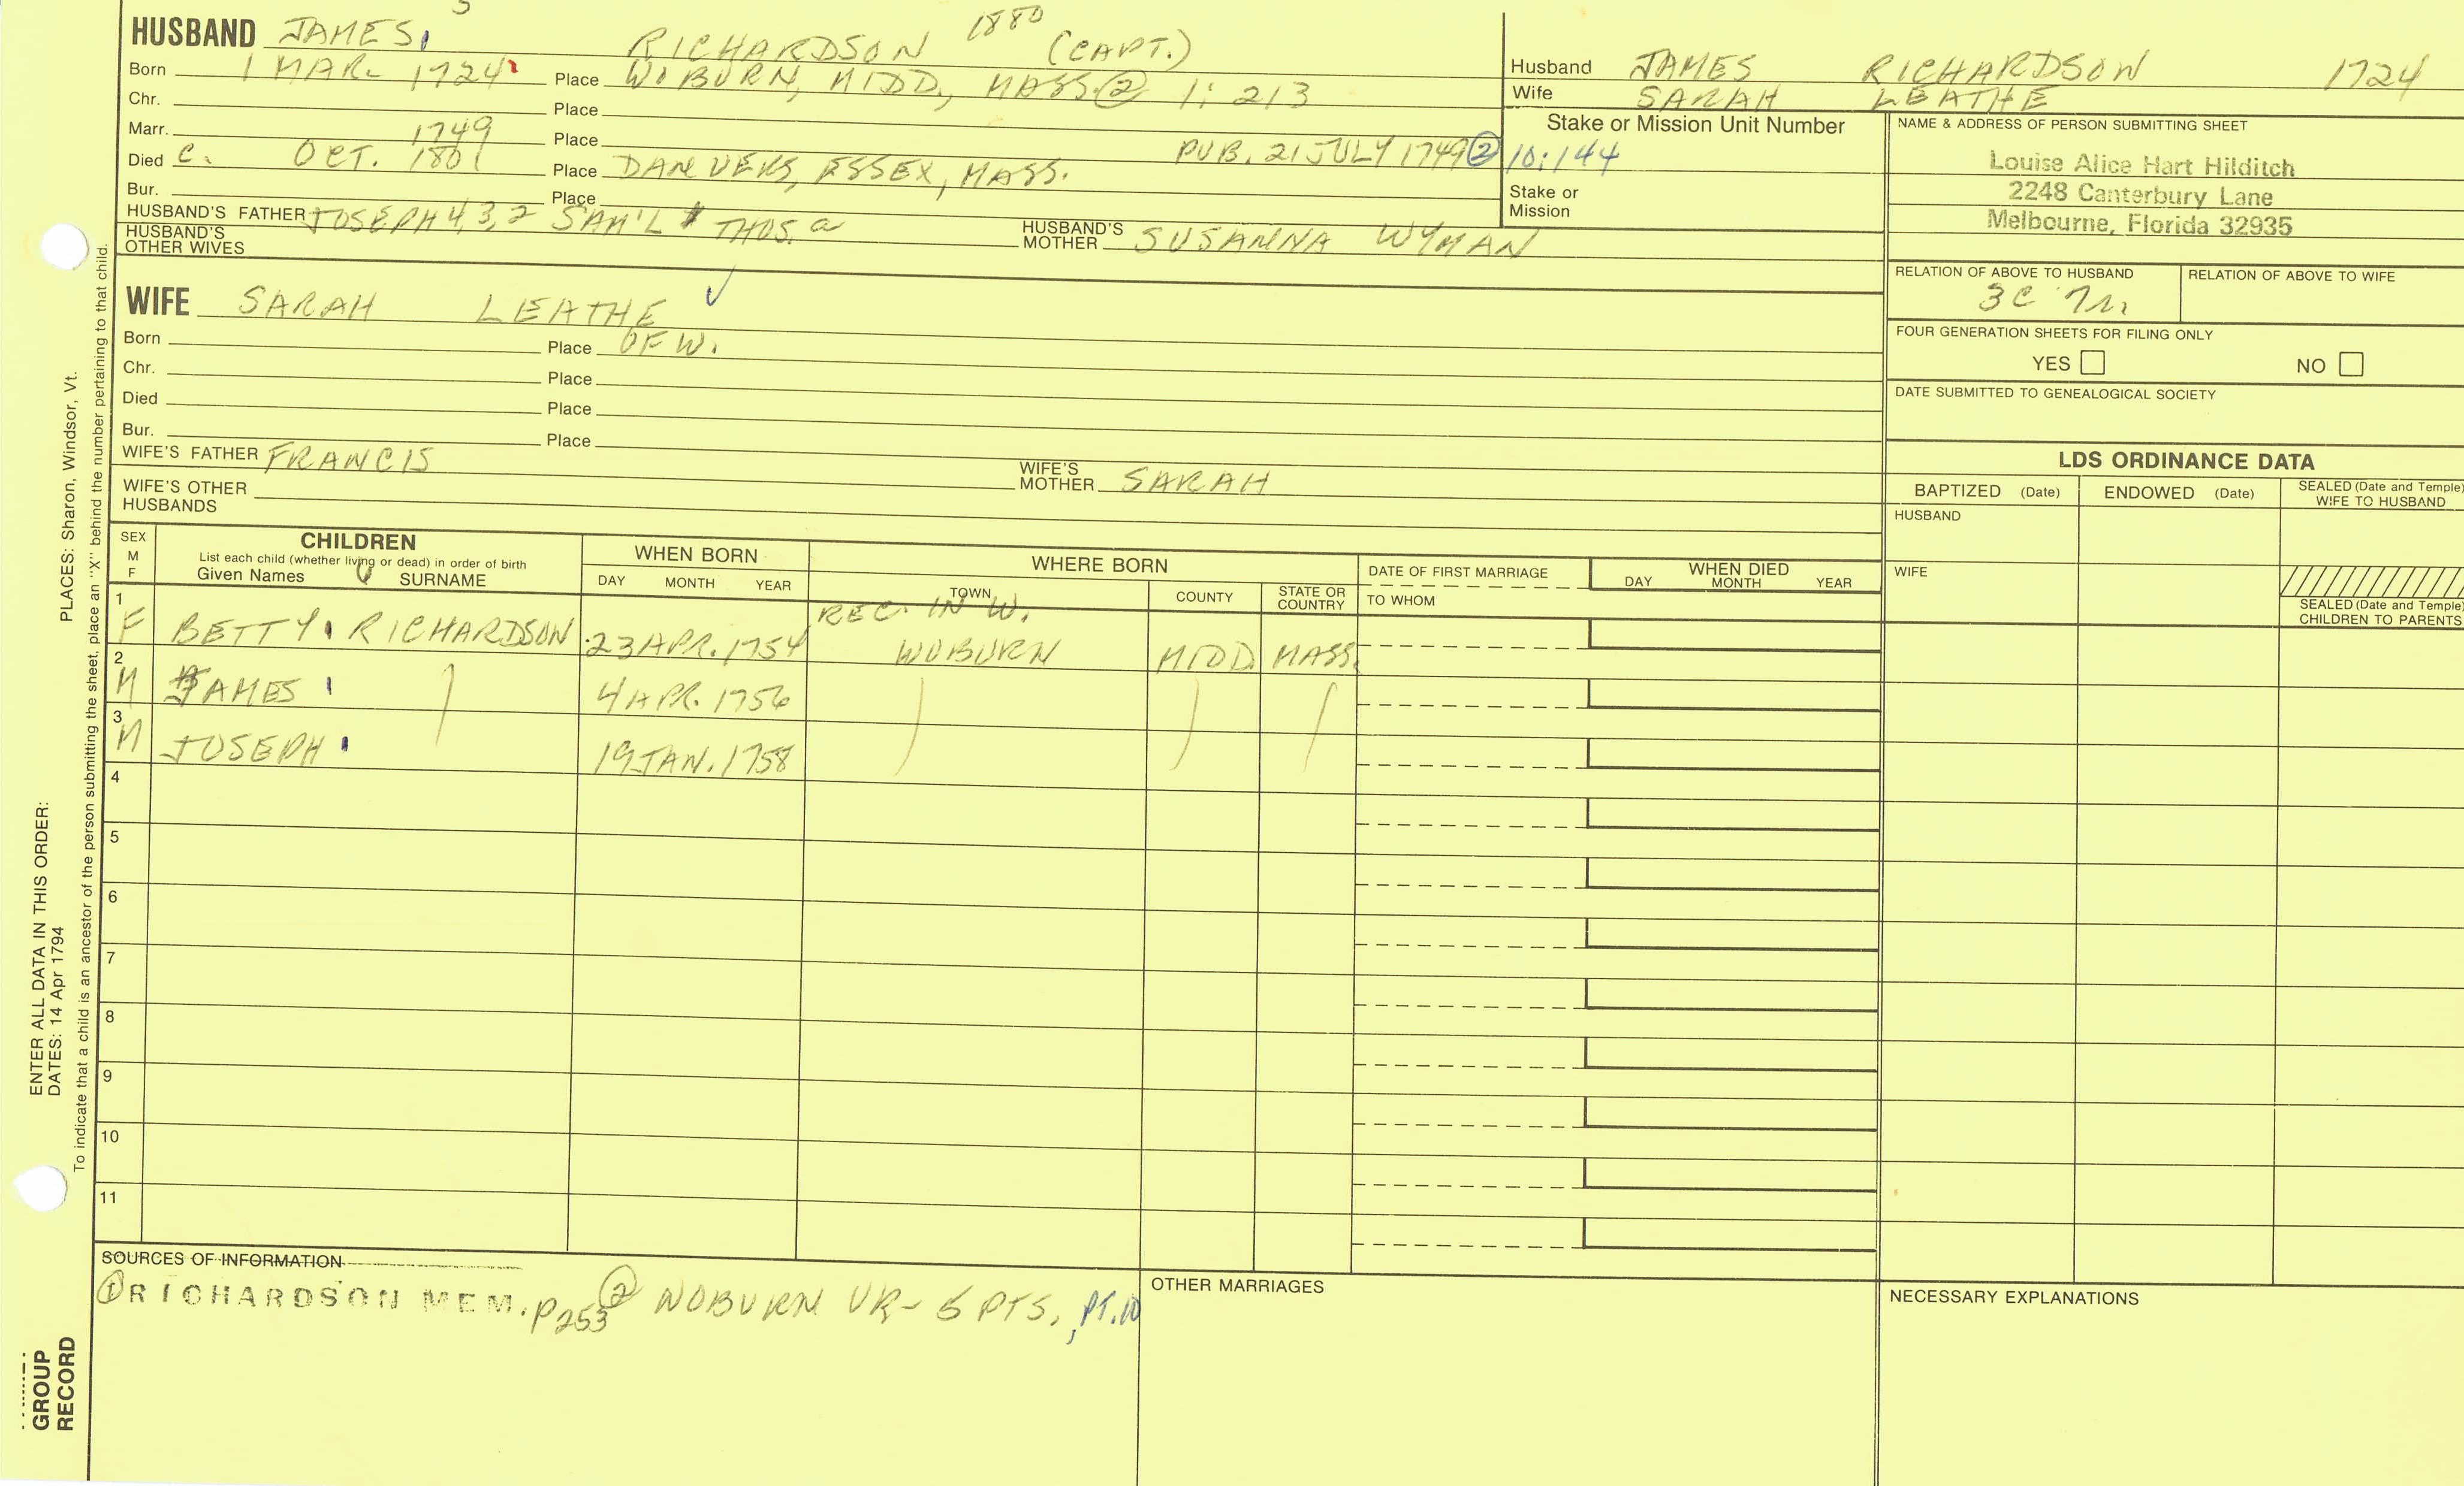 5
HUSBAND JAMES, RICHARDSON 1880 (CAPT.)
Born 1 MAR. 1724 Place WOBURN, MIDD, MASS. ② 1: 213
Chr. Place
Marr. 1749 Place PUB. 21 JULY 1749 ② 10:144
Died C. OCT. 1801 Place DANVERS, ESSEX, MASS.
Bur. Place
HUSBAND'S FATHER JOSEPH 4, 3, 2 SAM'L THOS. a HUSBAND'S MOTHER SUSANNA WYMAN
HUSBAND'S OTHER WIVES
WIFE SARAH LEATHE ✓
Born Place OF W.
Chr. Place
Died Place
Bur. Place
WIFE'S FATHER FRANCIS WIFE'S MOTHER SARAH
WIFE'S OTHER HUSBANDS
Husband JAMES RICHARDSON 1724
Wife SARAH LEATHE
Stake or Mission Unit Number
Stake or Mission
NAME & ADDRESS OF PERSON SUBMITTING SHEET
Louise Alice Hart Hilditch
2248 Canterbury Lane
Melbourne, Florida 32935
RELATION OF ABOVE TO HUSBAND RELATION OF ABOVE TO WIFE
3C 7r.
FOUR GENERATION SHEETS FOR FILING ONLY
YES NO
DATE SUBMITTED TO GENEALOGICAL SOCIETY
LDS ORDINANCE DATA
BAPTIZED (Date) ENDOWED (Date) SEALED (Date and Temple) WIFE TO HUSBAND
HUSBAND
WIFE
SEALED (Date and Temple) CHILDREN TO PARENTS
SEX M F
CHILDREN
List each child (whether living or dead) in order of birth
Given Names SURNAME
WHEN BORN
DAY MONTH YEAR
WHERE BORN
TOWN COUNTY STATE OR COUNTRY
DATE OF FIRST MARRIAGE
TO WHOM
WHEN DIED
DAY MONTH YEAR
REC. IN W.
1 F BETTY RICHARDSON 23 APR. 1754 WOBURN MIDD. MASS.
2 M JAMES 4 APR. 1756
3 M JOSEPH 19 JAN. 1758
4
5
6
7
8
9
10
11
SOURCES OF INFORMATION
① RICHARDSON MEM. P253 ② WOBURN VR- 5 PTS, , PT. 10
OTHER MARRIAGES
NECESSARY EXPLANATIONS
ENTER ALL DATA IN THIS ORDER:
DATES: 14 Apr 1794
PLACES: Sharon, Windsor, Vt.
To indicate that a child is an ancestor of the person submitting the sheet, place an "X" behind the number pertaining to that child.
GROUP
RECORD